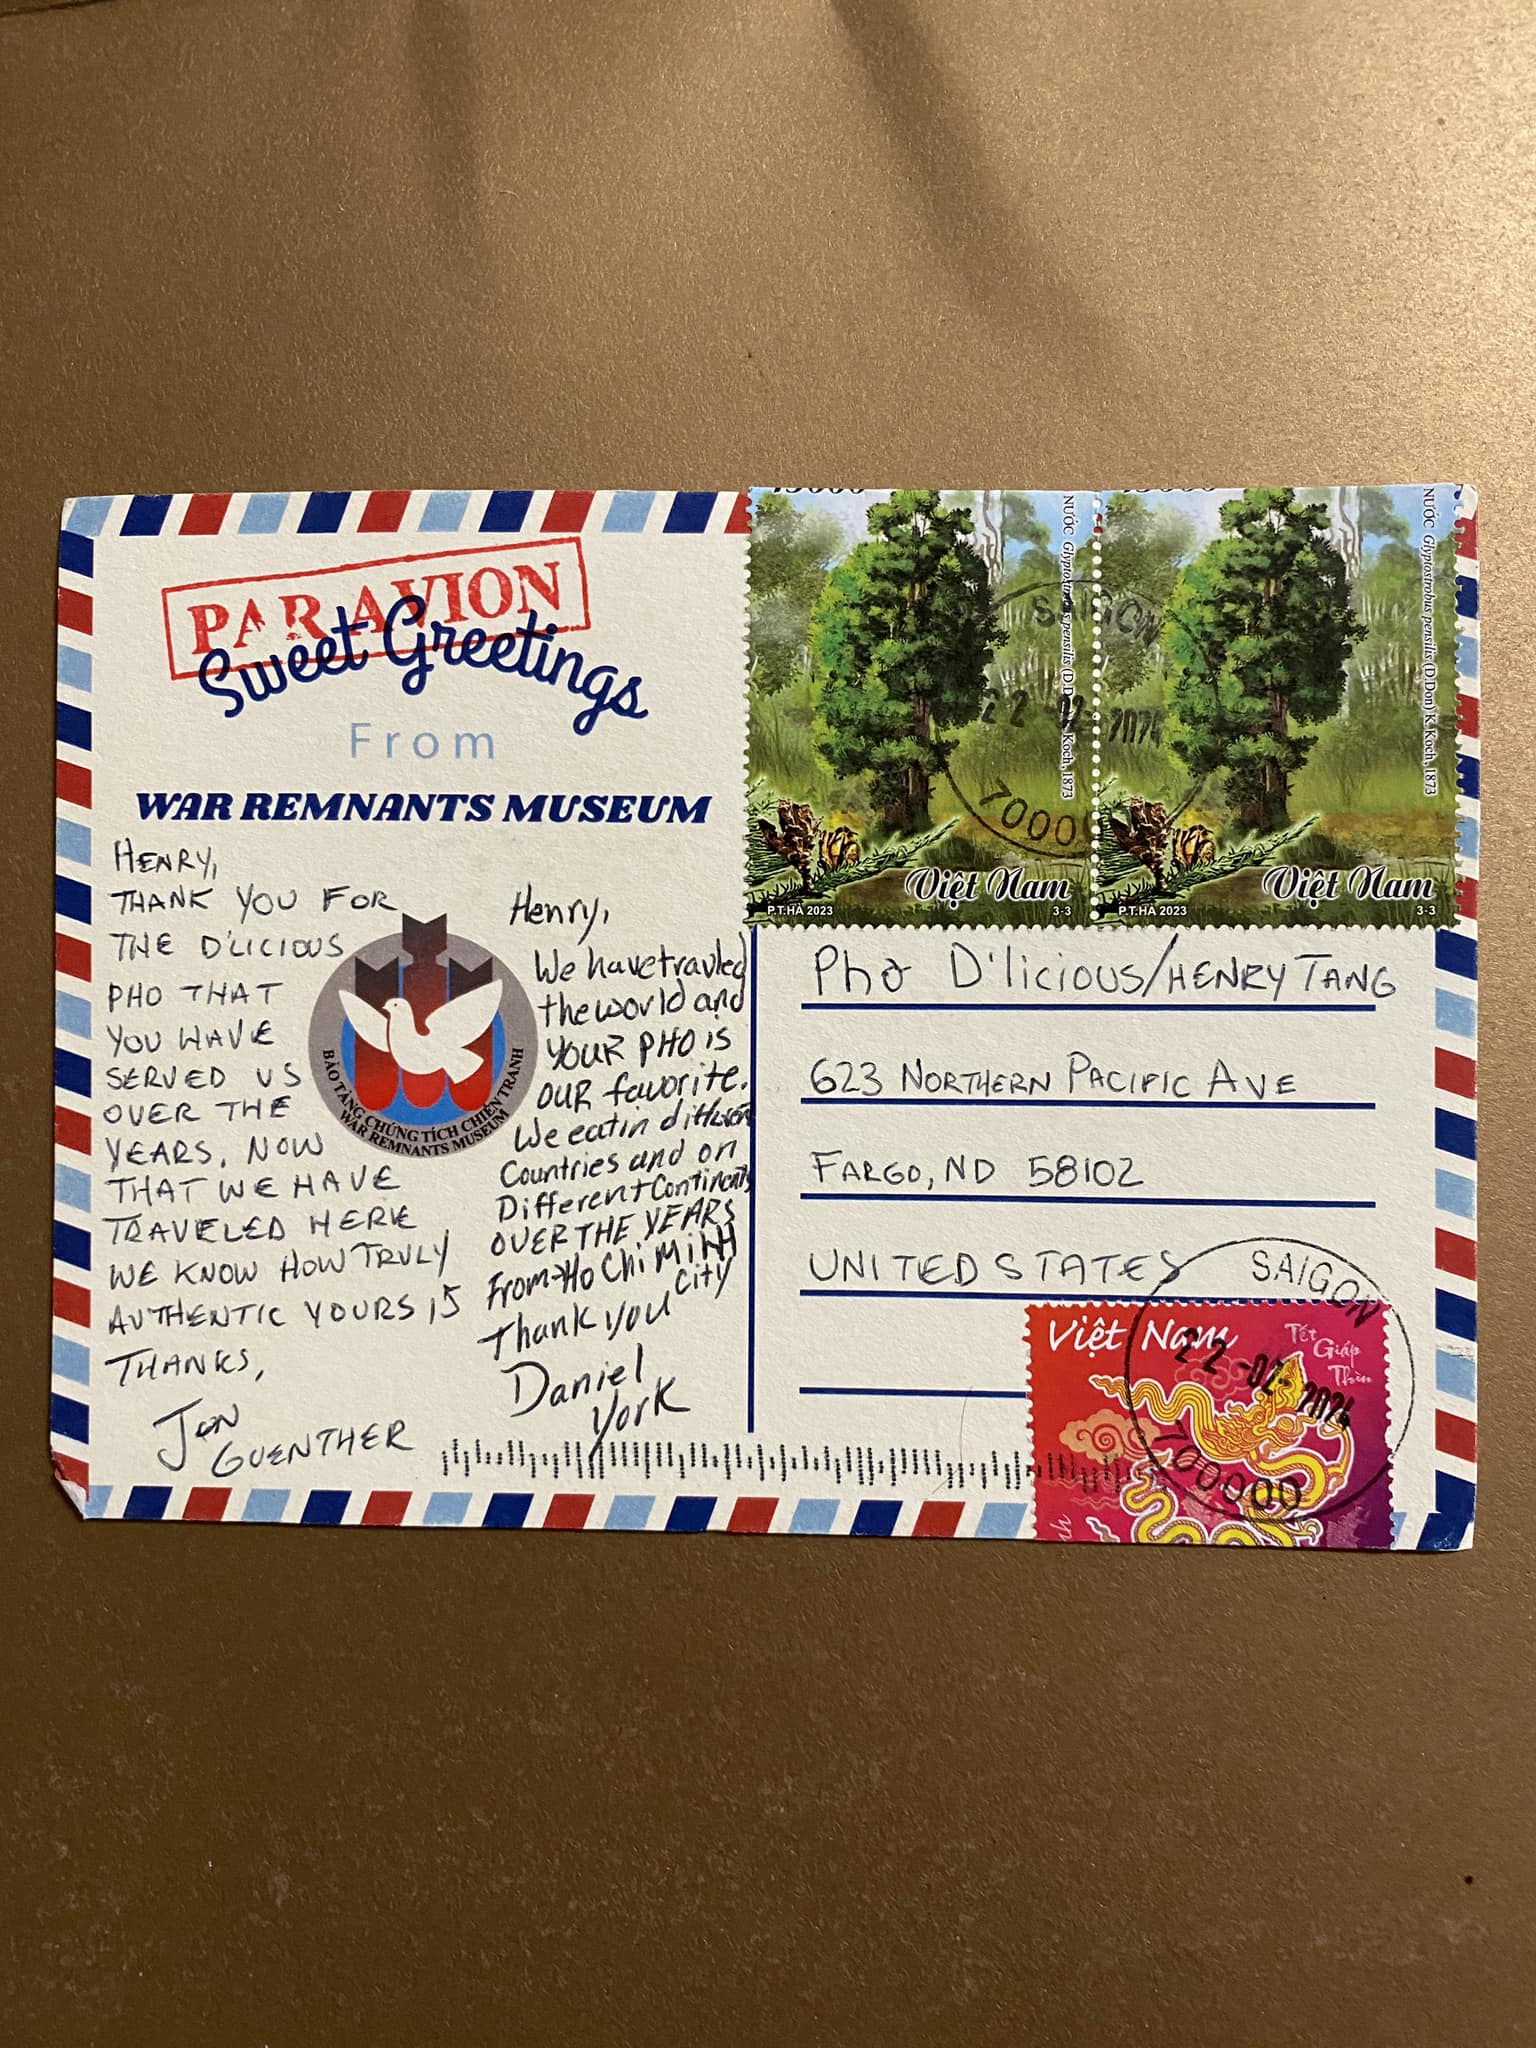 PAR AVION
Sweet Greetings
From
WAR REMNANTS MUSEUM
HENRY,
THANK YOU FOR
THE D'LICIOUS
PHO THAT
YOU HAVE
SERVED US
OVER THE
YEARS. NOW
THAT WE HAVE
TRAVELED HERE
WE KNOW HOW TRULY
AUTHENTIC YOURS IS
THANKS,
JON
GUENTHER
BẢO TÀNG CHỨNG TÍCH CHIẾN TRANH
WAR REMNANTS MUSEUM
Henry,
We have travled
the world and
YOUR PHO IS
OUR favorite.
We eat in different
Countries and on
Different Continents
OVER THE YEARS
From Ho Chi MINH
City
Thank you
Daniel
York
15000
NƯỚC Glyptostrobus pensilis (D.Don) K. Koch, 1873
Việt Nam
P.T.HÀ 2023
3-3
15000
NƯỚC Glyptostrobus pensilis (D.Don) K. Koch, 1873
Việt Nam
P.T.HÀ 2023
3-3
SAIGON
22-02-2024
70000
Phở D'licious/HENRY TANG
623 NORTHERN PACIFIC AVE
FARGO, ND 58102
UNITED STATES
Việt Nam
Tết
Giáp
Thìn
SAIGON
22-02-2024
700000